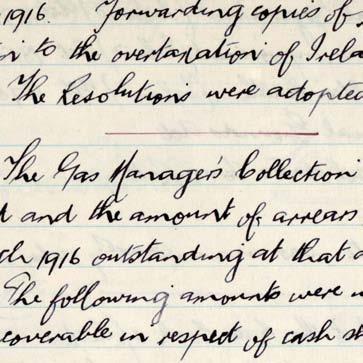 1916. Forwarding copies of
to the overtaxation of Irela
The Resolutions were adopted
The Gas Manager's Collection
and the amount of arrears
ch 1916 outstanding at that d
The following amounts were
coverable in respect of cash s